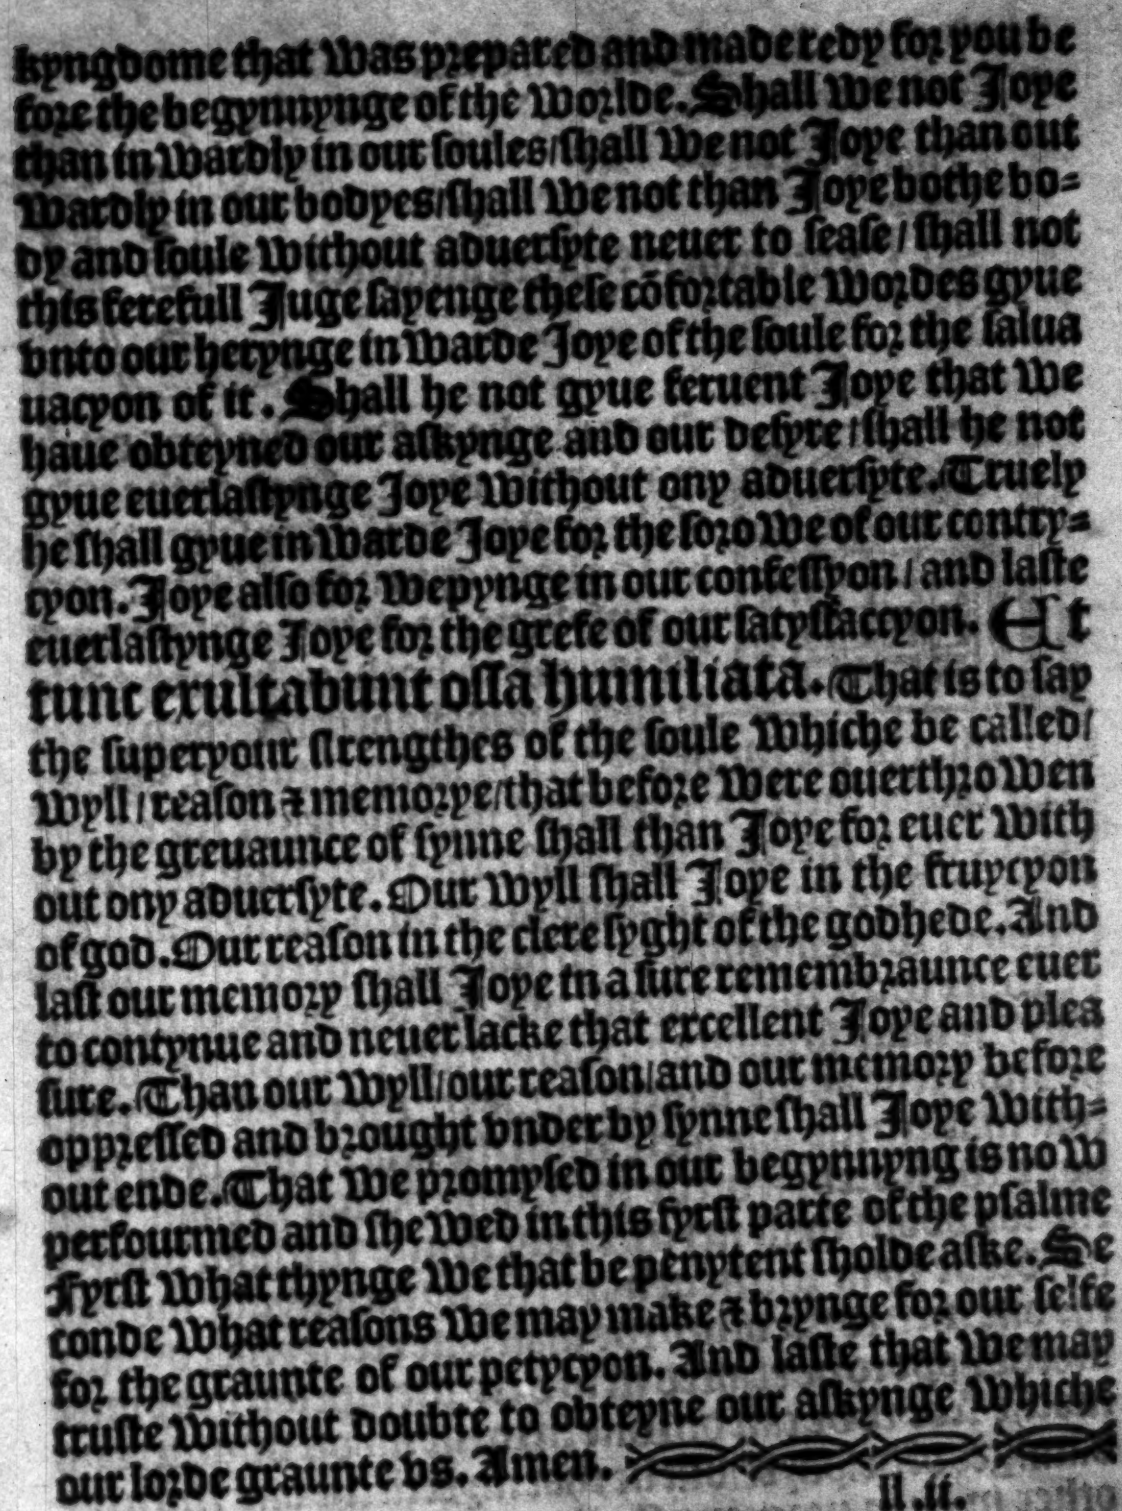 kyngdome that was prepared and made redy for you be
fore the begynnynge of the worlde. Shall we not Joye
than in wardly in our soules/shall we not Joye than out
wardly in our bodyes/shall we not than Joye bothe bo=
dy and soule without aduersyte neuer to sease/shall not
this ferefull Juge sayenge these cōfortable wordes gyue
vnto our herynge in warde Joye of the soule for the salua
uacyon of it. Shall he not gyue feruent Joye that we
haue obteyned our askynge and our desyre/shall he not
gyue euerlastynge Joye without ony aduersyte. Truely
he shall gyue in warde Joye for the sorowe of our contry=
cyon. Joye also for wepynge in our confessyon/and laste
euerlastynge Joye for the grefe of our satysfaccyon. Et
tunc exultabunt ossa humiliata. That is to say
the superyour strengthes of the soule whiche be called/
wyll/reason ⁊ memorye/that before were ouerthrowen
by the greuaunce of synne shall than Joye for euer with
out ony aduersyte. Our wyll shall Joye in the fruycyon
of god. Our reason in the clere syght of the godhede. And
last our memory shall Joye in a sure remembraunce euer
to contynue and neuer lacke that excellent Joye and plea
sure. Than our wyll/our reason/and our memory before
oppressed and brought vnder by synne shall Joye with=
out ende. That we promysed in our begynnyng is now
perfourmed and shewed in this fyrst parte of the psalme
Fyrst what thynge we that be penytent sholde aske. Se
conde what reasons we may make ⁊ brynge for our selfe
for the graunte of our petycyon. And laste that we may
truste without doubte to obteyne our askynge whiche
our lorde graunte vs. Amen.
ll.ii.